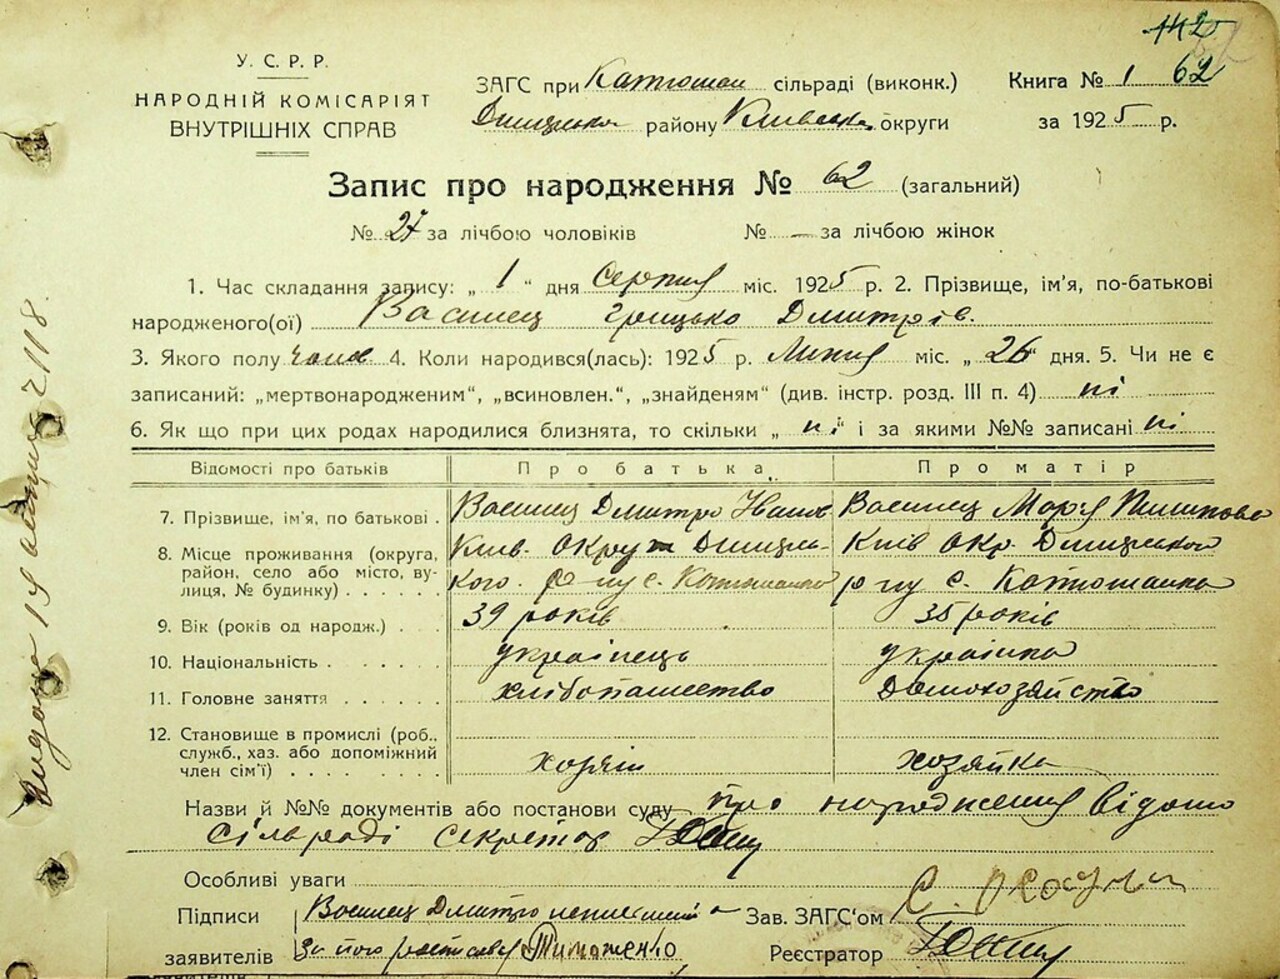 62
У. С. Р. Р.
НАРОДНІЙ КОМІСАРІЯТ
ВНУТРІШНІХ СПРАВ
ЗАГС при Катюшан сільраді (виконк.)
Димерського району Київська округи
Книга № 1
за 1925 р.
Запис про народження № 62 (загальний)
№ 27 за лічбою чоловіків № — за лічбою жінок
1. Час складання запису: „ 1 “ дня Серпня міс. 1925 р. 2. Прізвище, ім'я, по-батькові
народженого(ої) Василец Грицько Дмитрів.
3. Якого полу чолов 4. Коли народився(лась): 1925 р. Липня міс. „ 26 “ дня. 5. Чи не є
записаний: „мертвонародженим“, „всиновлен.“, „знайденям“ (див. інстр. розд. III п. 4) ні
6. Як що при цих родах народилися близнята, то скільки „ ні “ і за якими №№ записані ні
Відомості про батьків Про батька Про матір
7. Прізвище, ім'я, по батькові . Василец Дмитро Іванов Василец Марія Пилипова
8. Місце проживання (округа, район, село або місто, вулиця, № будинку) . . . . . .
Київ. Округ Димерсь- Київ Окр. Димерського
кого р-ну с. Катюшанка р-ну с. Катюшанка
9. Вік (років од народж.) . . . 39 років 35 років
10. Національність . . . . . . українець українка
11. Головне заняття . . . . . . хлібопашество Домохозяйство
12. Становище в промислі (роб., служб., хаз. або допоміжний член сім'ї) . . . . . . . .
хозяін хозяйка
Назви й №№ документів або постанови суду про народження відомо
сільраді секретар
Особливі уваги
Підписи Василец Дмитро неписьмений Зав. ЗАГС'ом
заявителів За його росписався Тимошенко Реєстратор